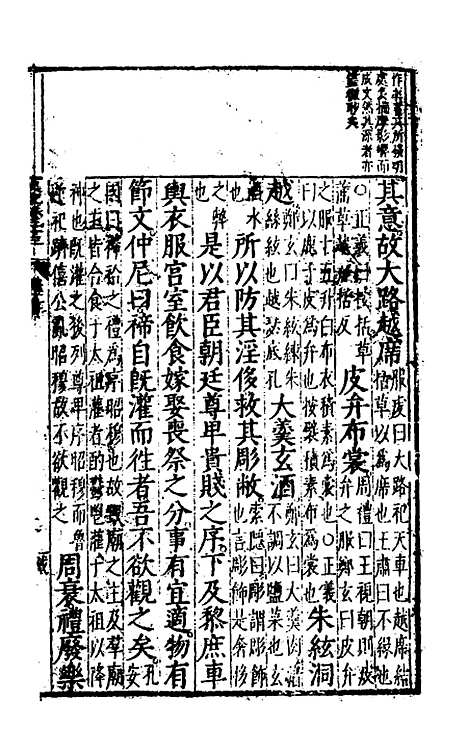 成文然其深者亦
其意故大路越席服虔曰大路祀天車也越席結
括草以為席也王肅曰不緣也
○正義曰按括草
蒲草
皮弁布裳周禮曰王視朝則皮
弁之服鄭玄曰皮弁
之服十五升白布衣積素為裳也○正義
曰以鹿子皮為弁也按襞積素布為裳也
朱絃洞
越鄭玄曰朱絃練朱
絲絃也越瑟底孔
大羹玄酒鄭玄曰大羹肉湆
不調以鹽菜也玄
酒水
所以防其淫侈救其彫敝索隱曰彫謂彫飾
也言彫飾是奢侈
之弊
也
是以君臣朝廷尊卑貴賤之序下及黎庶車
輿衣服宮室飲食嫁娶喪祭之分事有宜適物有
節文仲尼曰禘自既灌而往者吾不欲觀之矣孔
安
國曰禘祫之禮為序昭穆也故毀廟之主及群廟
之主皆合食于太祖灌者酌鬱鬯灌于太祖以降
神也既灌之後列尊卑序昭穆而魯
逆祀躋僖公亂昭穆故不欲觀之
周衰禮廢樂